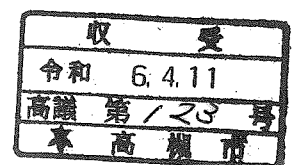 収受
令和 6.4.11
高議 第123号
高槻市